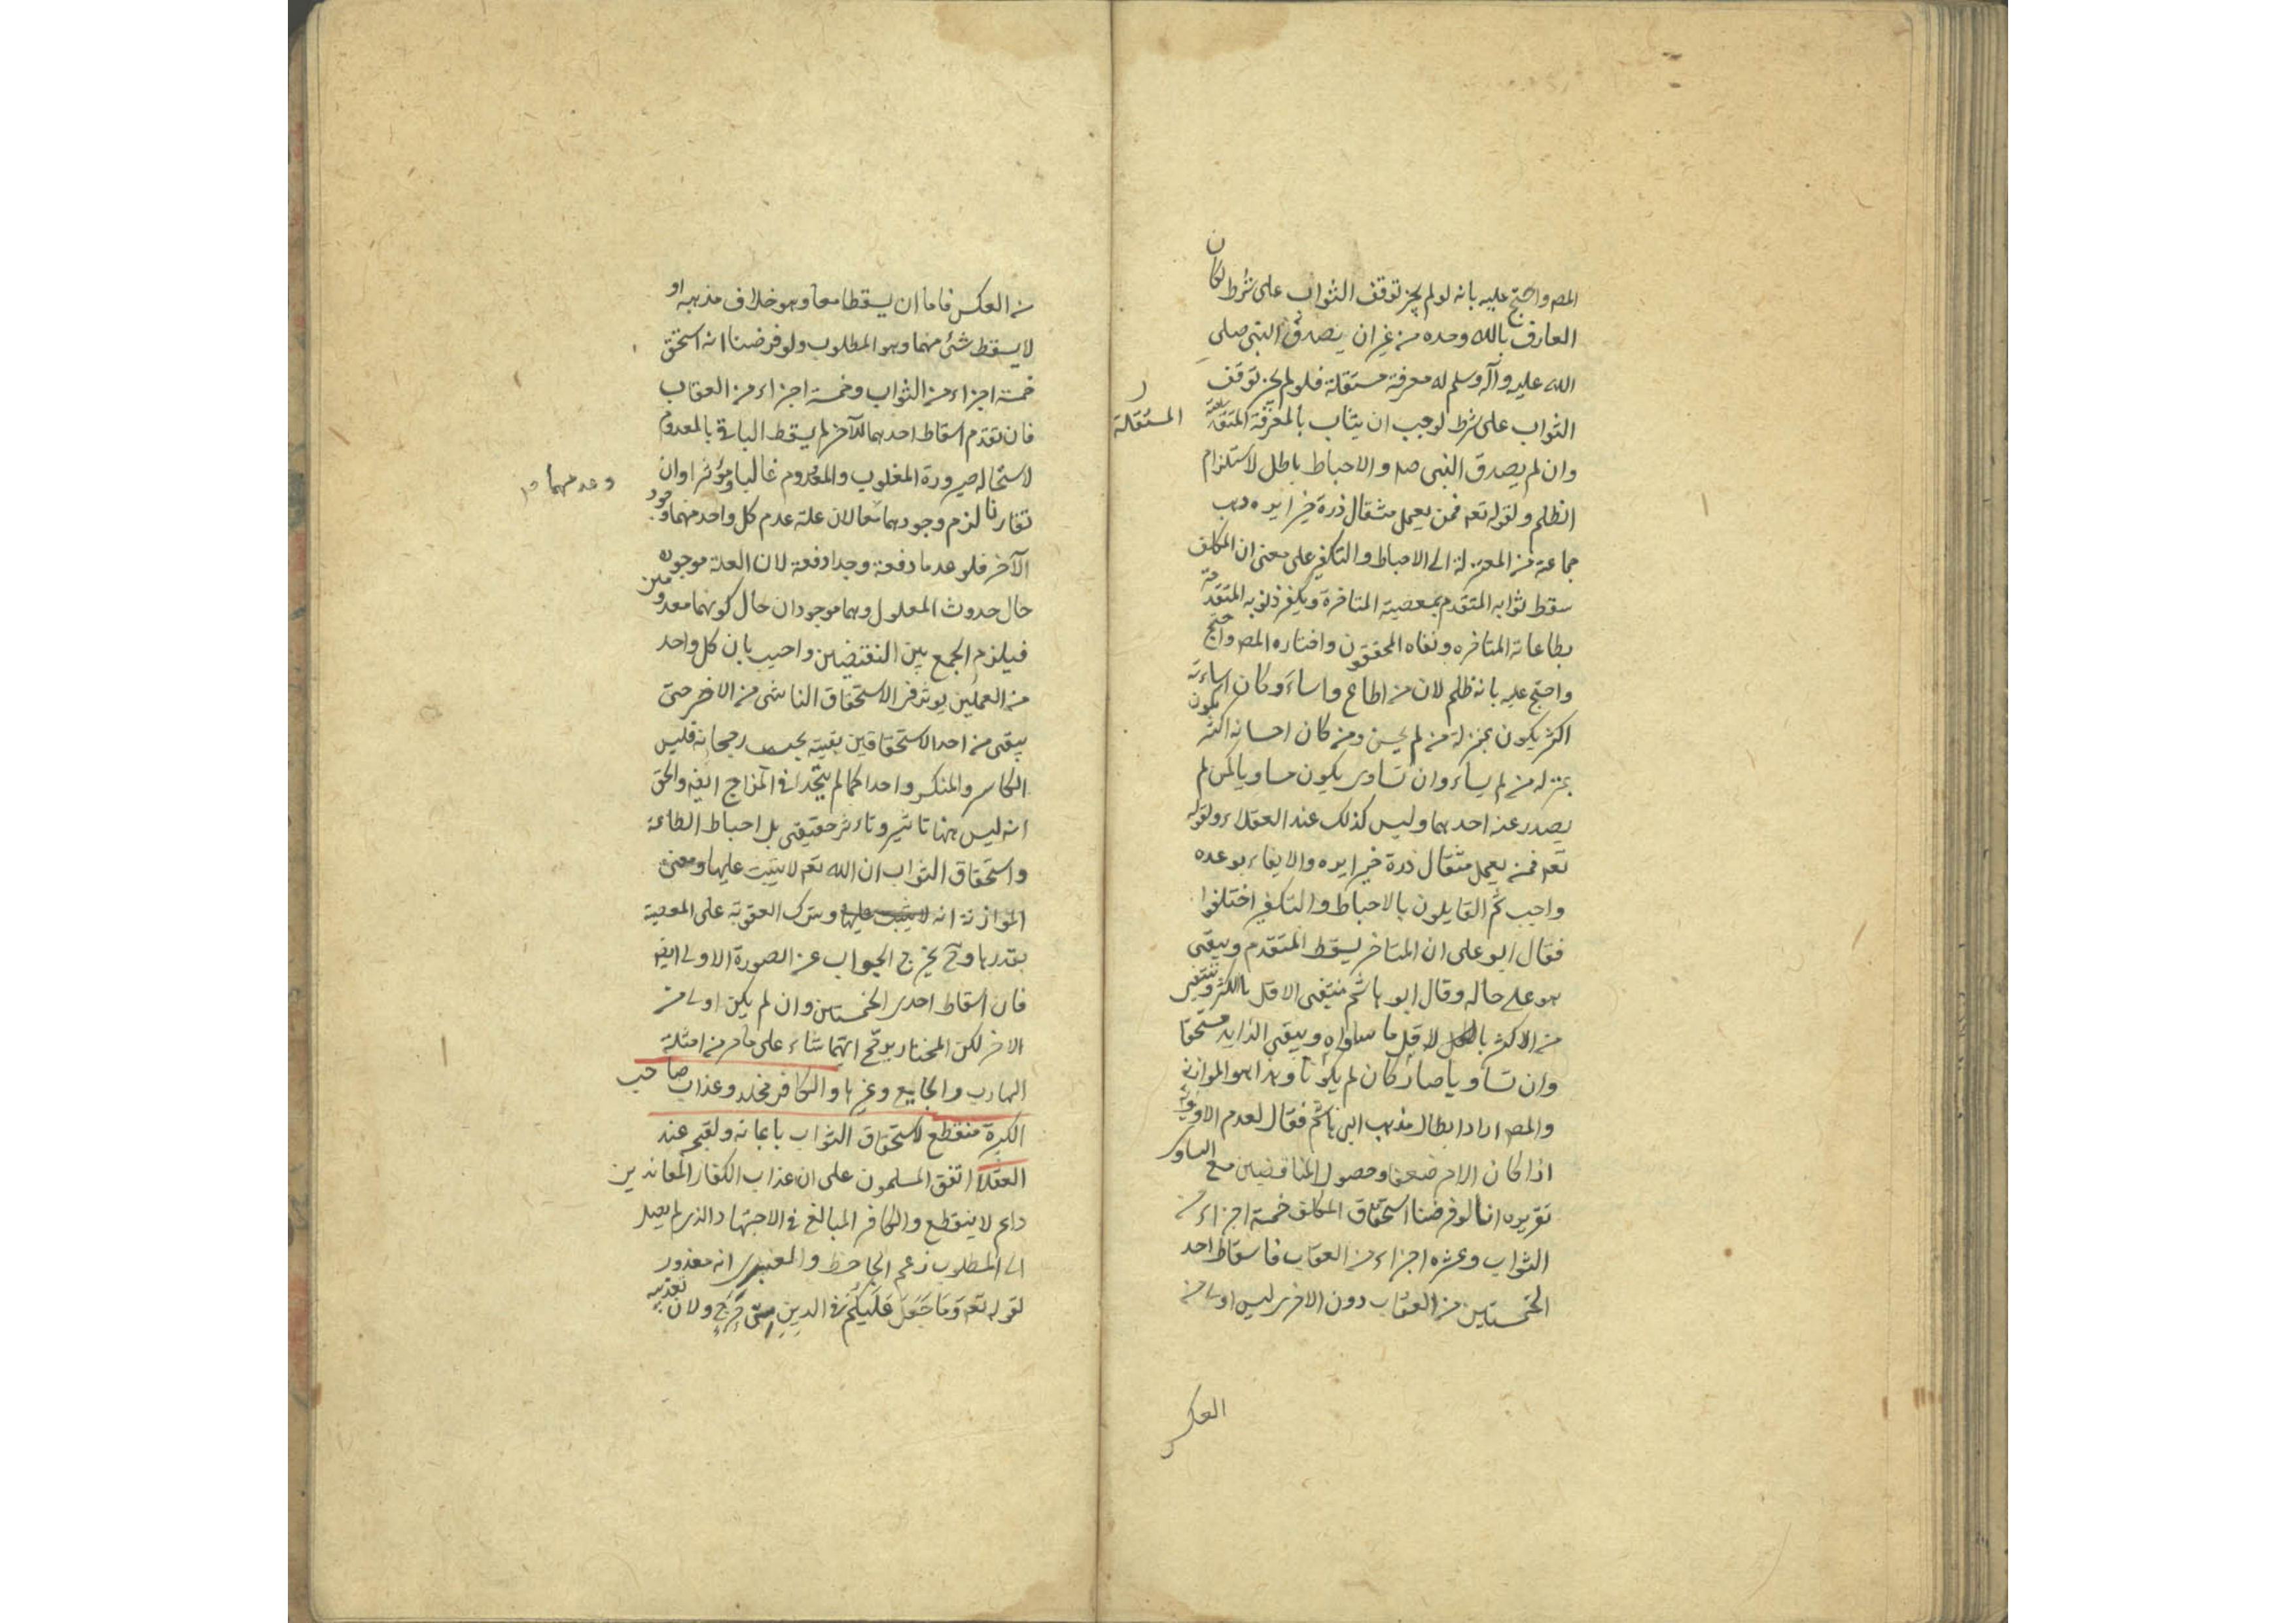 المص واحتج عليه بانه لو لم يجز توقف الثواب على شرط لكان
العارف بالله وحده من غير ان يصدق النبى صلى
الله عليه وآله وسلم له معرفة مستقلة فلو لم يجز توقف
الثواب على شرط لوجب ان يثاب بالمعرفة المستقلة
وان لم يصدق النبى صه والاحباط باطل لاستلزام
الظلم ولقوله تعه فمن يعمل مثقال ذرة خيرا يره ذهب
جماعة من المعتزلة الى الاحباط والتكفير على معنى ان المكلف
سقط ثوابه المتقدم بمعصيته المتاخرة ويكفر ذنوبه المتقدمة
بطاعاته المتاخره ونفاه المحققون واختاره المص واحتج
واحتج عليه بانه ظلم لان من اطاع واساء وكان اساءته
اكثر يكون بمنزلة من لم يحسن ومن كان احسانه اكثر يكون
بمنزله من لم يساء وان تساوى يكون مساويا لمن لم
يصدر عنه احدهما وليس كذلك عند العقلاء ولقوله
تعه فمن يعمل مثقال ذرة خيرا يره والايفاء بوعده
واجب ثم القايلون بالاحباط والتكفير اختلفوا
فقال ابو على ان المتاخر يسقط المتقدم ويبقى
هو على حاله وقال ابو هاشم ينتفى الاقل بالاكثر وينتفى
من الاكثر بالاقل ما ساواه ويبقى الزايد مستحقا
وان تساويا صار كان لم يكونا وهذا هو الموازنة
والمص اراد ابطال مذهب ابى هاشم فقال لعدم الاولوية
اذا كان الاخر ضعفا وحصول المتناقضين مع التساوى
تقريره انا لو فرضنا استحقاق المكلف خمسة اجزاء من
الثواب وعشره اجزاء من العقاب فاسقاط احد
الخمستين من العقاب دون الاخرى ليس اولى من
العكس
المستقلة
من العكس فاما ان يسقطا معا وهو خلاف مذهبه او
لا يسقط شئ منهما وهو المطلوب ولو فرضنا انه استحق
خمسة اجزاء من الثواب وخمسة اجزاء من العقاب
فان تقدم اسقاط احدهما للآخر لم يسقط الباقى بالمعدوم
لاستحاله صيرورة المغلوب والمعدوم غالبا ومؤثرا وان
تقارنا لزم وجودهما معا لان علة عدم كل واحد منهما وجود
وعدمهما
الآخر فلو عدما دفعة وجدا دفعة لان العلة موجوده
حال حدوث المعلول وهما موجودان حال كونهما معدومين
فيلزم الجمع بين النقيضين واجيب بان كل واحد
من العملين يوثر فى الاستحقاق الناشى من الاخر حتى
يبقى من احد الاستحقاقين بقيته بحسب رجحانه فليس
الكاسر والمنكسر واحدا كما لم يتحدا فى المزاج ايضه والحق
انه ليس هنا تاثير وتاءثر حقيقى بل احباط الطاعة
واستحقاق الثواب ان الله تعه لا يثيب عليها ومعنى
الموازنة انه لا يثيب عليها ويترك العقوبة على المعصية
بقدرها وح يخرج الجواب عن الصورة الاولى ايضه
فان اسقاط احدى الخمستين وان لم يكن اولى من
الاخر لكن المختار يرجح ايهما شاء على ما مر من امثلة
الهارب والجايع وغيرها والكافر مخلد وعذاب صاحب
الكبيرة منقطع لاستحقاق الثواب بايمانه ولقبحه عند
العقلاء اتفق المسلمون على ان عذاب الكفار المعاندين
دايم لا ينقطع والكافر المبالغ فى الاجتهاد الذى لم يصل
الى المطلوب زعم الجاحظ والعنبرى انه معذور
لقوله تعه وَمَا جَعَلَ عَلَيكُم فى الدينِ مِن حَرَجٍ ولان تعذيبه